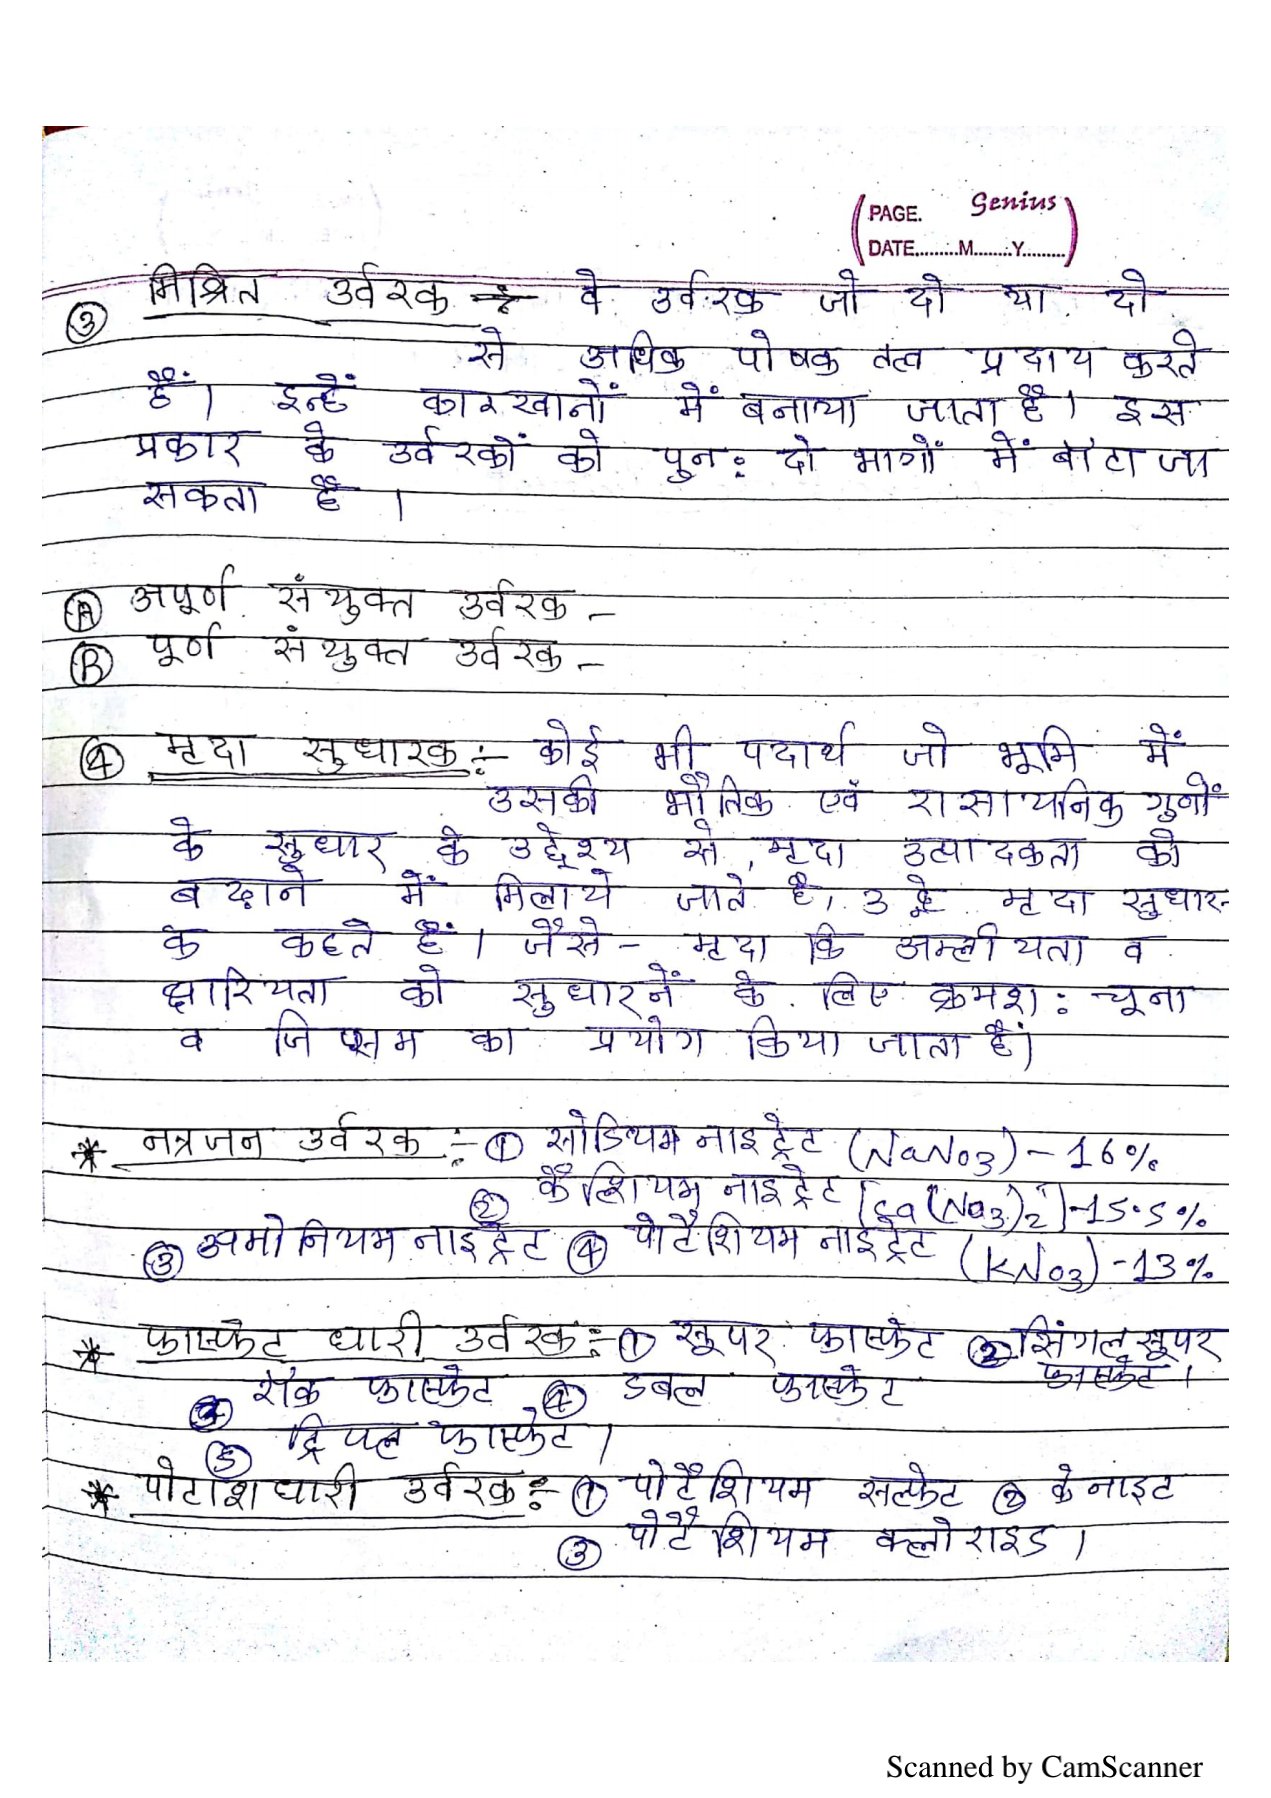 PAGE. Genius
DATE.........M........Y.........
③ मिश्रित उर्वरक :- वे उर्वरक जो दो या दो
से अधिक पोषक तत्व प्रदाय करते
हैं। इन्हें कारखानों में बनाया जाता है। इस
प्रकार के उर्वरकों को पुनः दो भागों में बांटा जा
सकता है ।
Ⓐ अपूर्ण संयुक्त उर्वरक -
Ⓑ पूर्ण संयुक्त उर्वरक -
④ मृदा सुधारक :- कोई भी पदार्थ जो भूमि में
उसकी भौतिक एवं रासायनिक गुणों
के सुधार के उद्देश्य से, मृदा उत्पादकता को
बढ़ाने में मिलाये जाते है, उन्हे मृदा सुधार-
क कहते हैं। जैसे - मृदा कि अम्लीयता व
क्षारियता को सुधारनें के लिए क्रमश: चूना
व जिप्सम का प्रयोग किया जाता है।
* नत्रजन उर्वरक :- ① सोडियम नाइट्रेट (NaNo3) - 16%
② कैल्शियम नाइट्रेट [Ca(No3)2] - 15.5%
③ अमोनियम नाइट्रेट ④ पोटैशियम नाइट्रेट (KNo3) - 13%
* फास्फेट धारी उर्वरक :- ① सूपर फास्फेट ② सिंगल सूपर
फास्फेट ।
③ रॉक फास्फेट ④ डबल फास्फेट
⑤ ट्रिपल फास्फेट ।
* पोटाशधारी उर्वरक :- ① पोटैशियम सल्फेट ② केनाइट
③ पोटैशियम क्लोराइड ।
Scanned by CamScanner